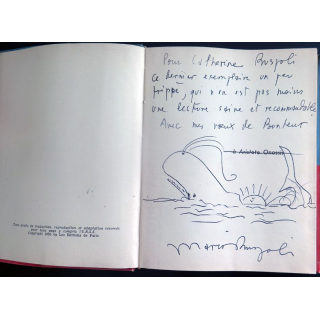 Tous droits de traduction, reproduction et adaptation réservés
pour tous pays y compris l'U.R.S.S.
Copyright by Les Editions de Paris
Pour Catherine Ruspoli
ce dernier exemplaire un peu
frippé, qui n'en est pas moins
une lecture saine et recommandable
Avec mes vœux de Bonheur
à Aristote Onassis
Mario Ruspoli